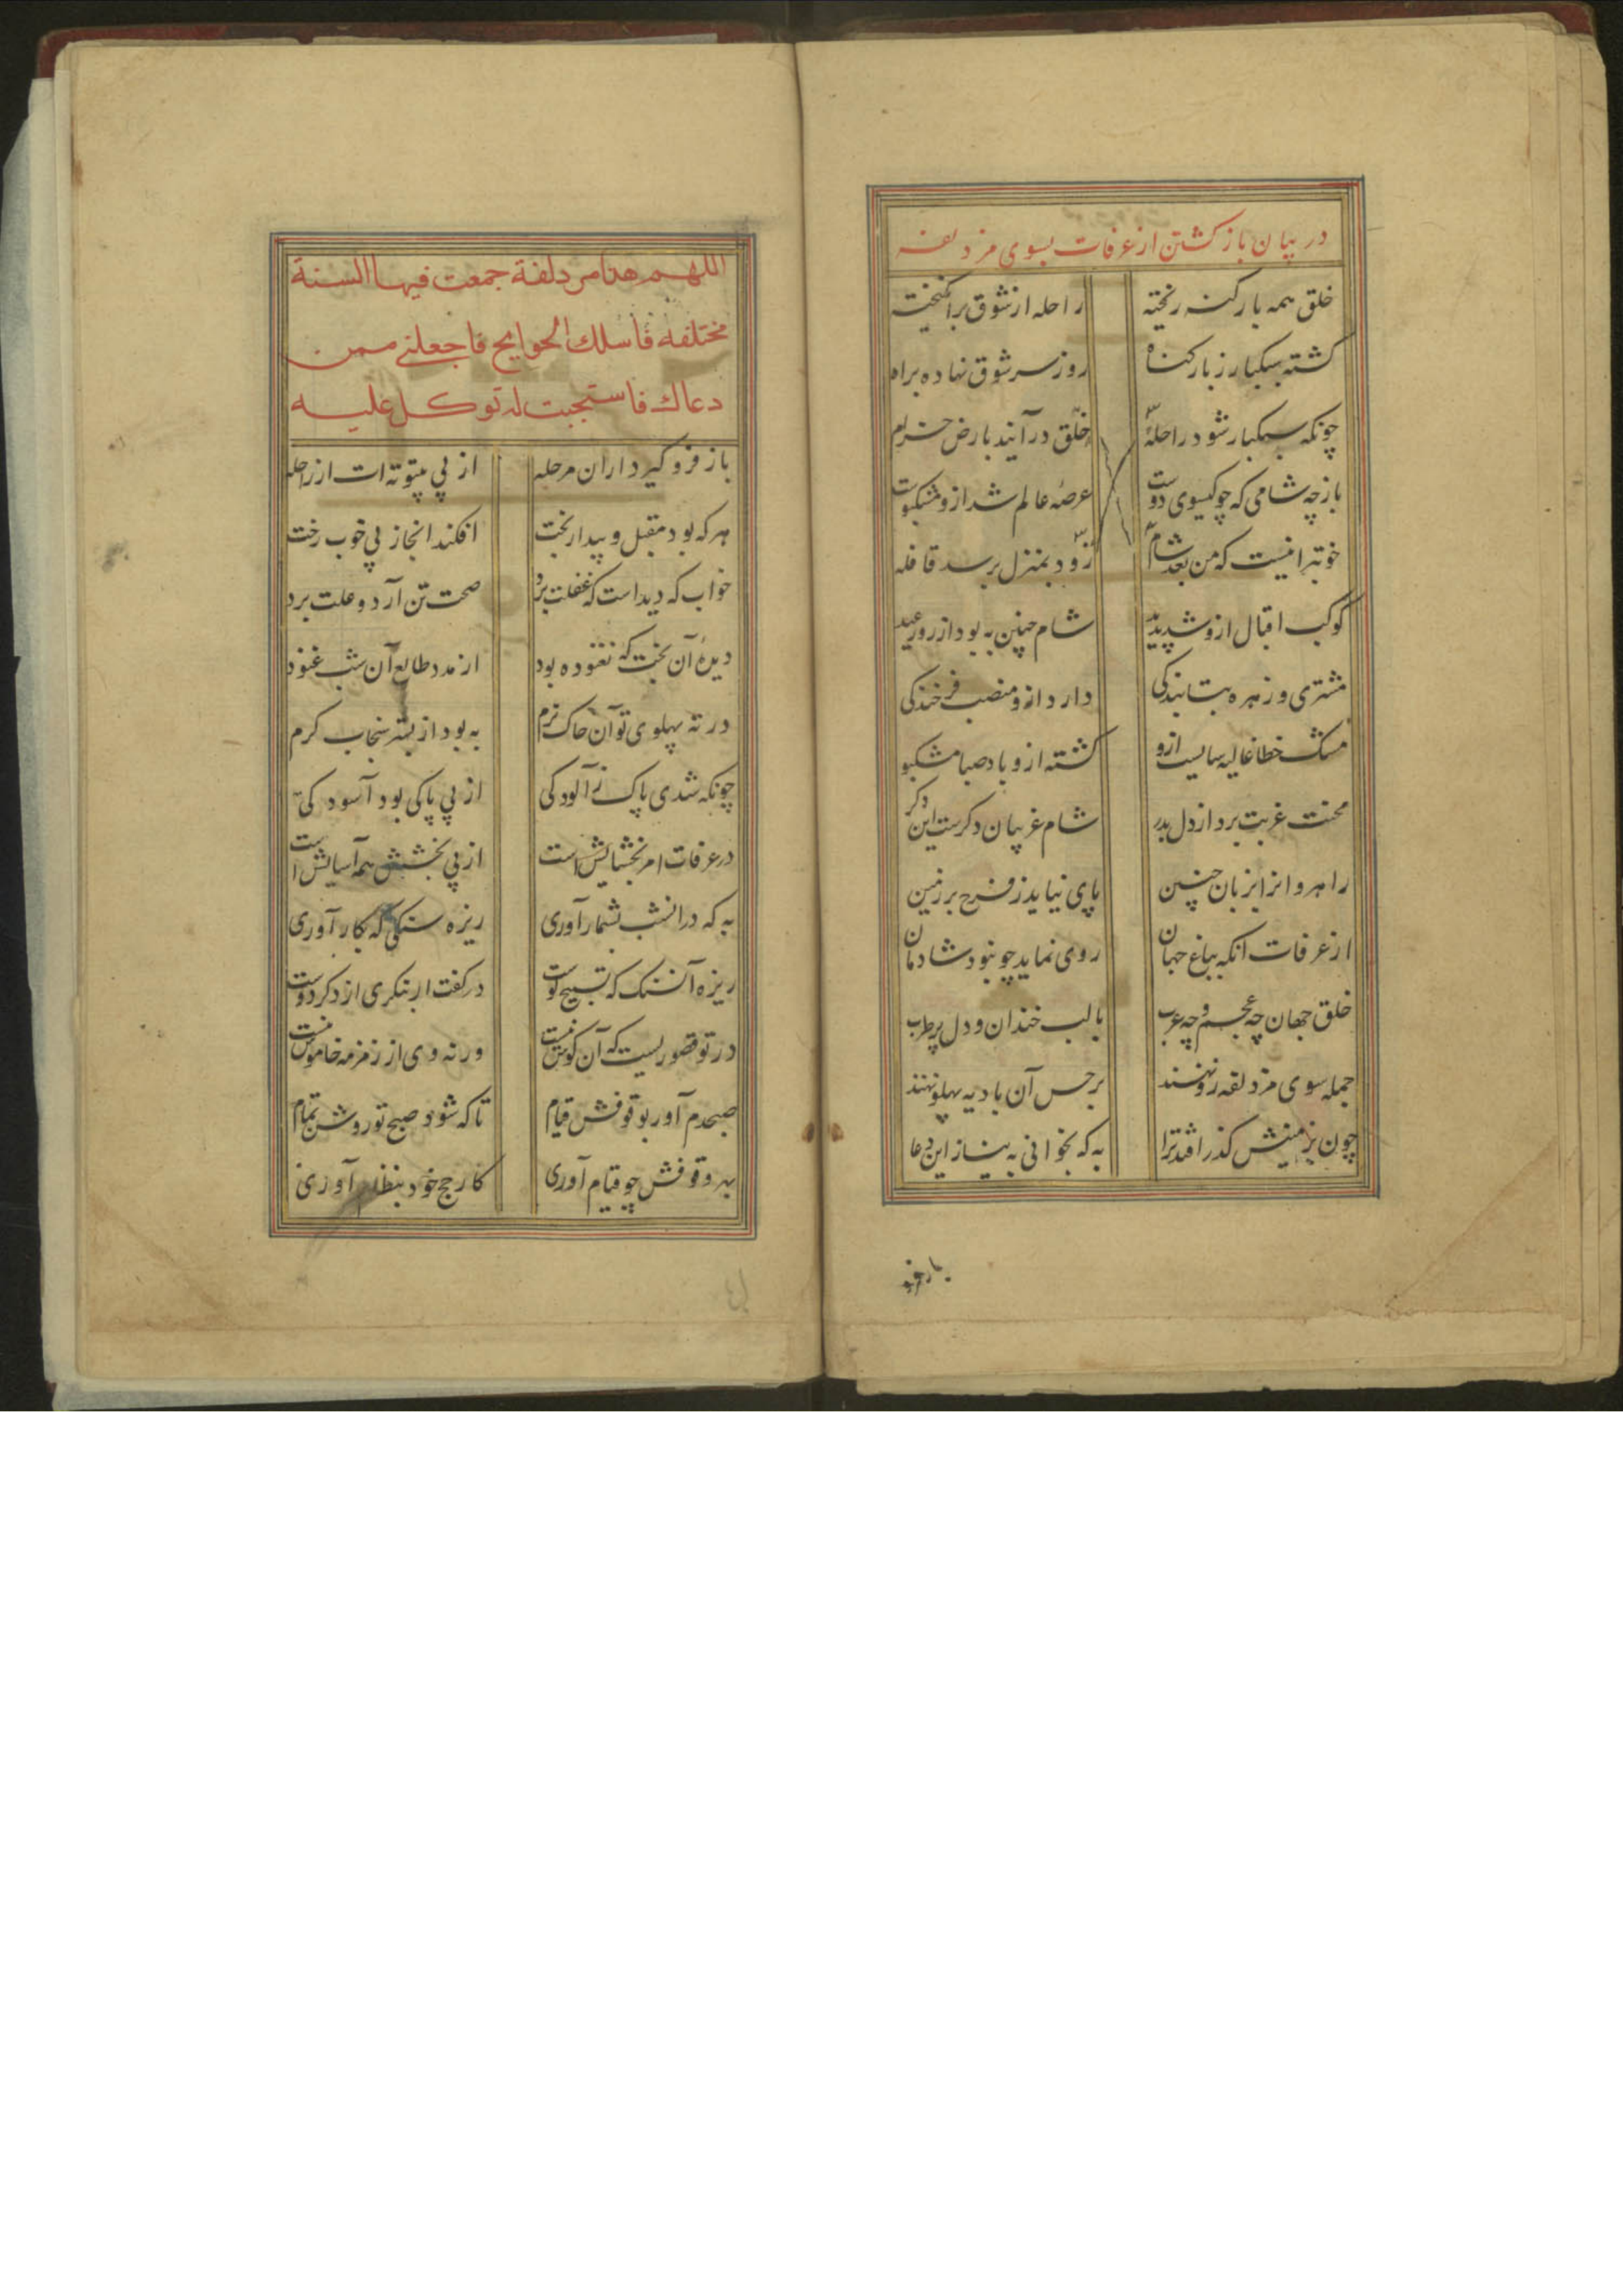 در بیان باز کشتن از عرفات بسوی مزدلفه
خلق همه بار کنه ریخته راحله از شوق برانکیخته
کشته سبکبار ز بار کناه روز سر شوق نهاده براه
چونکه سبکبار شود راحلهٔ خلق درآیند بارض حرام
باز چه شامی که چو کیسوی دوست عرصهٔ عالم شد ازو مشکبوست
خوبتر انیست که من بعد شام زود بمنزل برسد قافله
کوکب اقبال ازو شد پدید شام چنین به بود از روز عید
مشتری و زهره بتابندکی دارد ازو منصب فرخندکی
مشک خطا غالیه سایست ازو کشته ازو باد صبا مشکبو
محنت غربت برد از دل بدر شام غریبان دکرست این دکر
راهروانرا بزبان چنین پای نیاید ز فرح بر زمین
از عرفات انکه بباغ جهان روی نماید چو بنود شادمان
خلق جهان چه عجم و چه عرب با لب خندان و دل پر طرب
جمله سوی مزدلفه رو نهند بر خس آن بادیه پهلو نهند
چون بزمینش کذر افتد ترا به که بخوانی به نیاز این دعا
باز فرو
اللهم هذا مزدلفة جمعت فیها السنة
مختلفه فاسلك الحوایج فاجعلنی ممن
دعاك فاستجبت له توکل علیه
باز فرو کیر در اران مرحله از پی بیتوته ات از راحله
هر که بود مقبل و بیدار بخت افکند انجا ز پی خوب رخت
خواب که دیداست که غفلت برد صحت تن آرد و علت برد
دیدهٔ آن بخت که نغنوده بود از مدد طالع آن شب غنود
در ته پهلوی تو آن خاک نرم به بود از بستر سنجاب کرم
چونکه شدی پاک ز آلودکی از پی پاکی بود آسودکی
در عرفات امر بخشایش است از پی بخشش همه آسایش است
به که در انشب بشمار آوری ریزه سنکی که بکار آوری
ریزه آن سنک که تسبیح توست در کفت ار بنکری از ذکر دوست
در تو قصوریست که آن کوش نیست ورنه وی از زمزمه خاموش نیست
صبحدم آور بوقوفش قیام تا که شود صبح تو روشن تمام
بهر وقوفش چو قیام آوری کار حج خود بنظام آوری